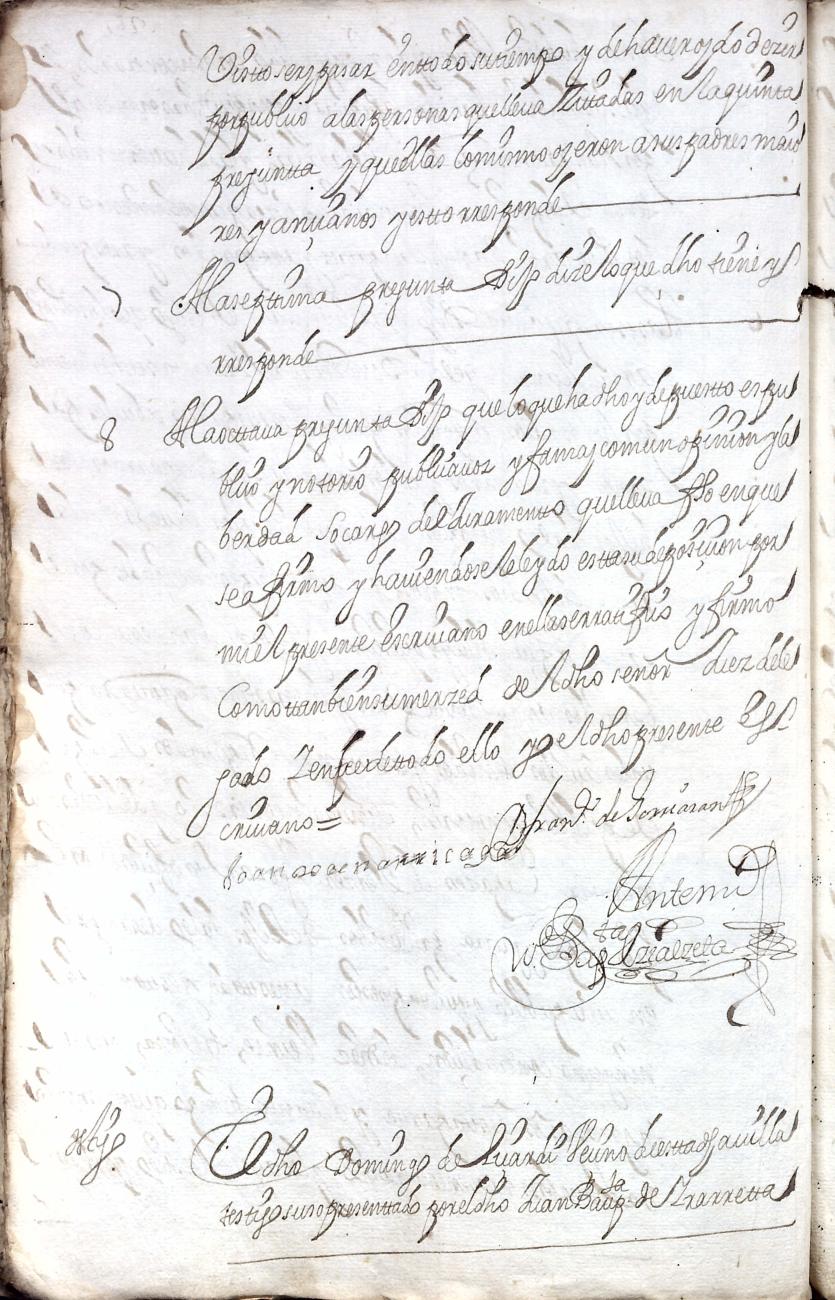 Visto ser y pasar en todo su tiempo y de haver oydo dezir
por publico a las personas que lleva zitadas en la quinta
pregunta y que ellas lo mismo oyeron a sus padres maio
res y ançianos y esto rresponde
7 A la septima pregunta Dijo dize lo que dho tiene y
rresponde
8 A la octtava pregunta Dijo que lo que ha dho y depuesto es pu
blico y notorio publica voz y fama y comun opinion y la
berdad so cargo del Juramentto que lleva fho en que
se afirmo y haviendosele leydo estta su deposiçion por
mi el presente escrivano en ella se rratifico y firmo
Como tanbien su merzed de el dho señor Juez dele
gado Zen fee de todo ello yo el dho presente Ess
crivano =
Fran.co de
Joan de narricaga
Ante mi
Bap ta
testigo
El dho Domingo de Vezino de esta dha villa
testigo suso presenttado por el dho Juan Bap ta de Yrarretta